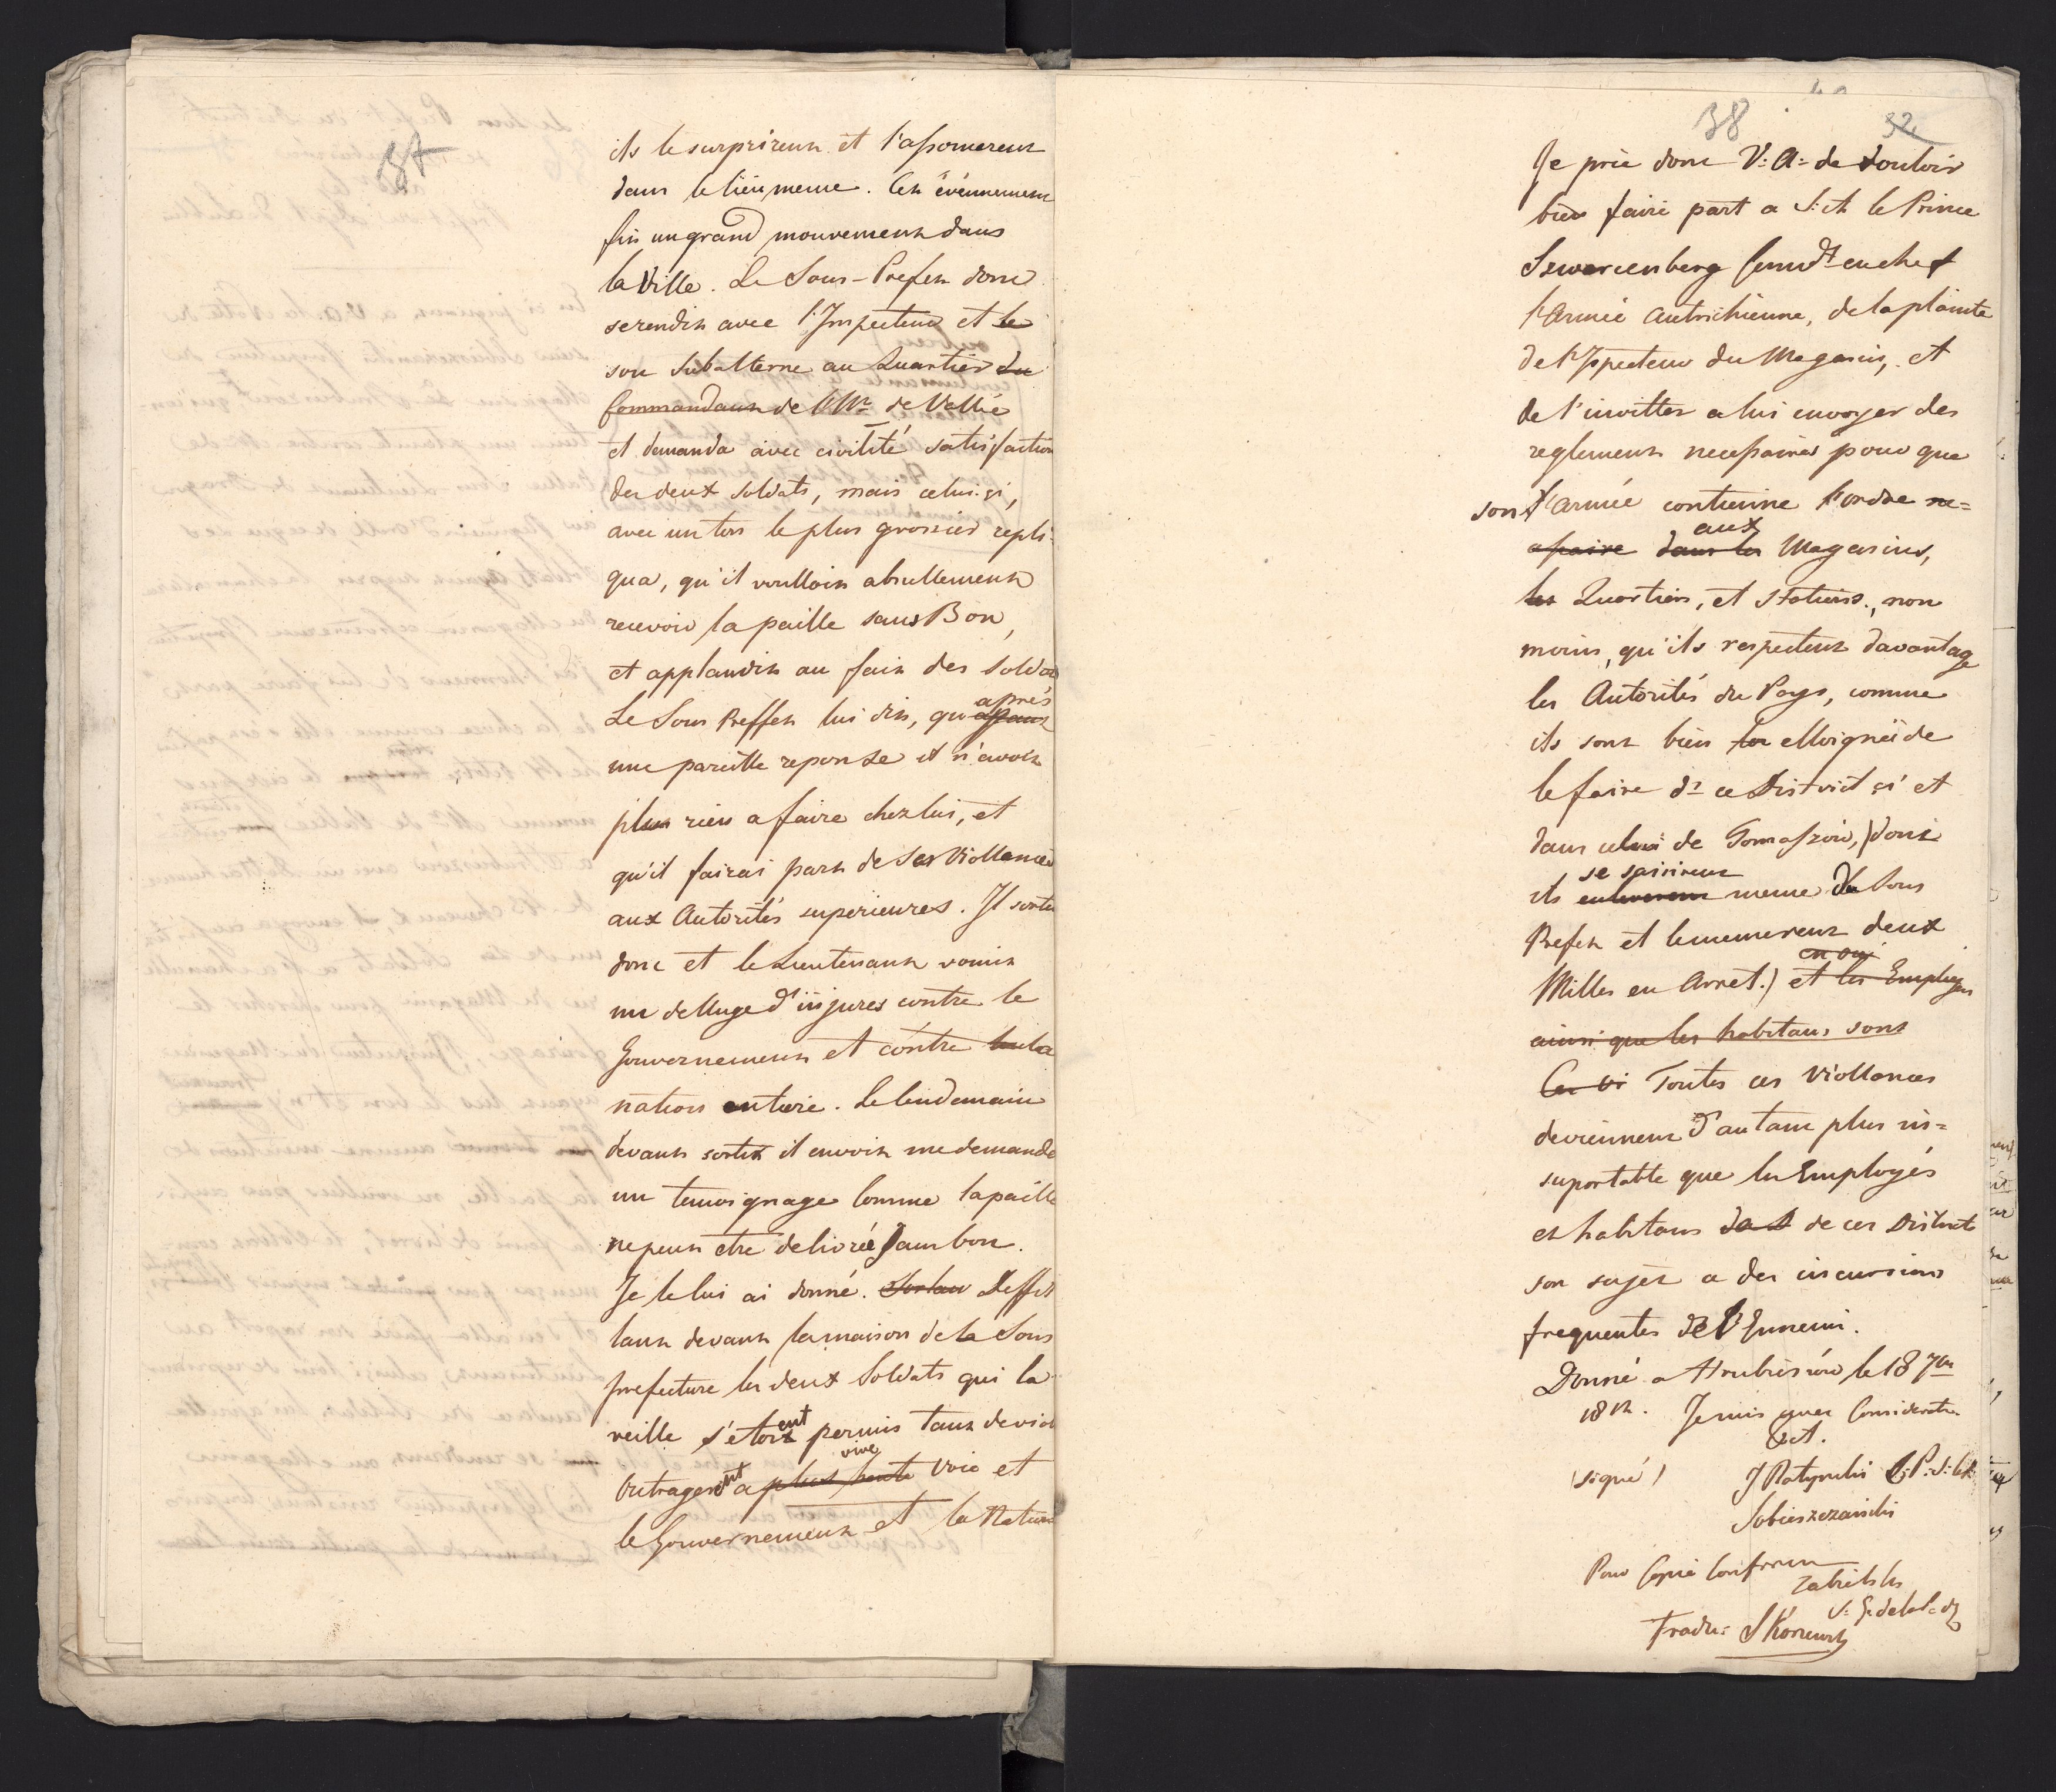 37
ils le surprirent et l'assomerent
dans le lieu meme. Cet événnement
fit un grand mouvement dans
la Ville. Le Sous-Prefet donc
se rendit avec l'Inspecteur et le
son Subalterne au Quartier du
Commandant de Mr de Vallié
et demanda avec civilité satisfaction
des deux soldats, mais celui-çi,
avec un ton le plus grossier repli-
qua, qu'il voulloit absullement
recevoir la paille sans Bon,
et applaudit au fait des Soldat
Le Sous Preffet lui dit, qu'après
une pareille reponse il n'avoit
plus rien a faire chez lui, et
qu'il fairai part de ses Viollances
aux Autorités superieures. Il sortit
donc et le Lieutenant vomit
un delluge d'injures contre le
Gouvernement et contre la
nation entiere. Le lendemain
devant sortir il envoit me demande
un temoignage comme la paille
ne peut etre delivrée sans bon.
Je le lui ai donné. Deffi
lant devant la maison de la Sous
prefecture les deux Soldats qui la
veille s'etoient permis tant de viol
Outragent a plus haute vive voie et
le Gouvernement et la Nation
38
32
Je prie donc V: A: de Vouloir
bien faire part a S: A le Prince
Szwarcenberg Commdt en chef
l'Armée Autrichienne, de la plainte
de l'Ispecteur du Magasin, et
de l'invitter a lui envoyer des
reglement necessaires pour que
son l'Armée contienne l'ordre
aux
dans les Magasins,
les Quartiers, et Stations, non
moins, qu'ils respectent davantage
les Autorités du Pays, comme
ils sont bien elloigné de
le faire ds ce District çi et
dans celui de Tomaszow, (dont
se saisirent
ils enleverent meme du Sous
Prefet et l'emmenerent deux
Milles en Arret.) et les Employes
ainsi que les habitans sont
Toutes ces Viollances
deviennent d'autant plus in=
suportable que les Employés
et habitans de ces District
son sujet a des incursions
frequentes de l'Ennemi.
Donné a Hrubieszów le 18 7bre
1812. Je suis avec Consideration
&ct.
(signé) J Ratynski
Sobieszczanski
Pour Copie Conforme
Tradu: